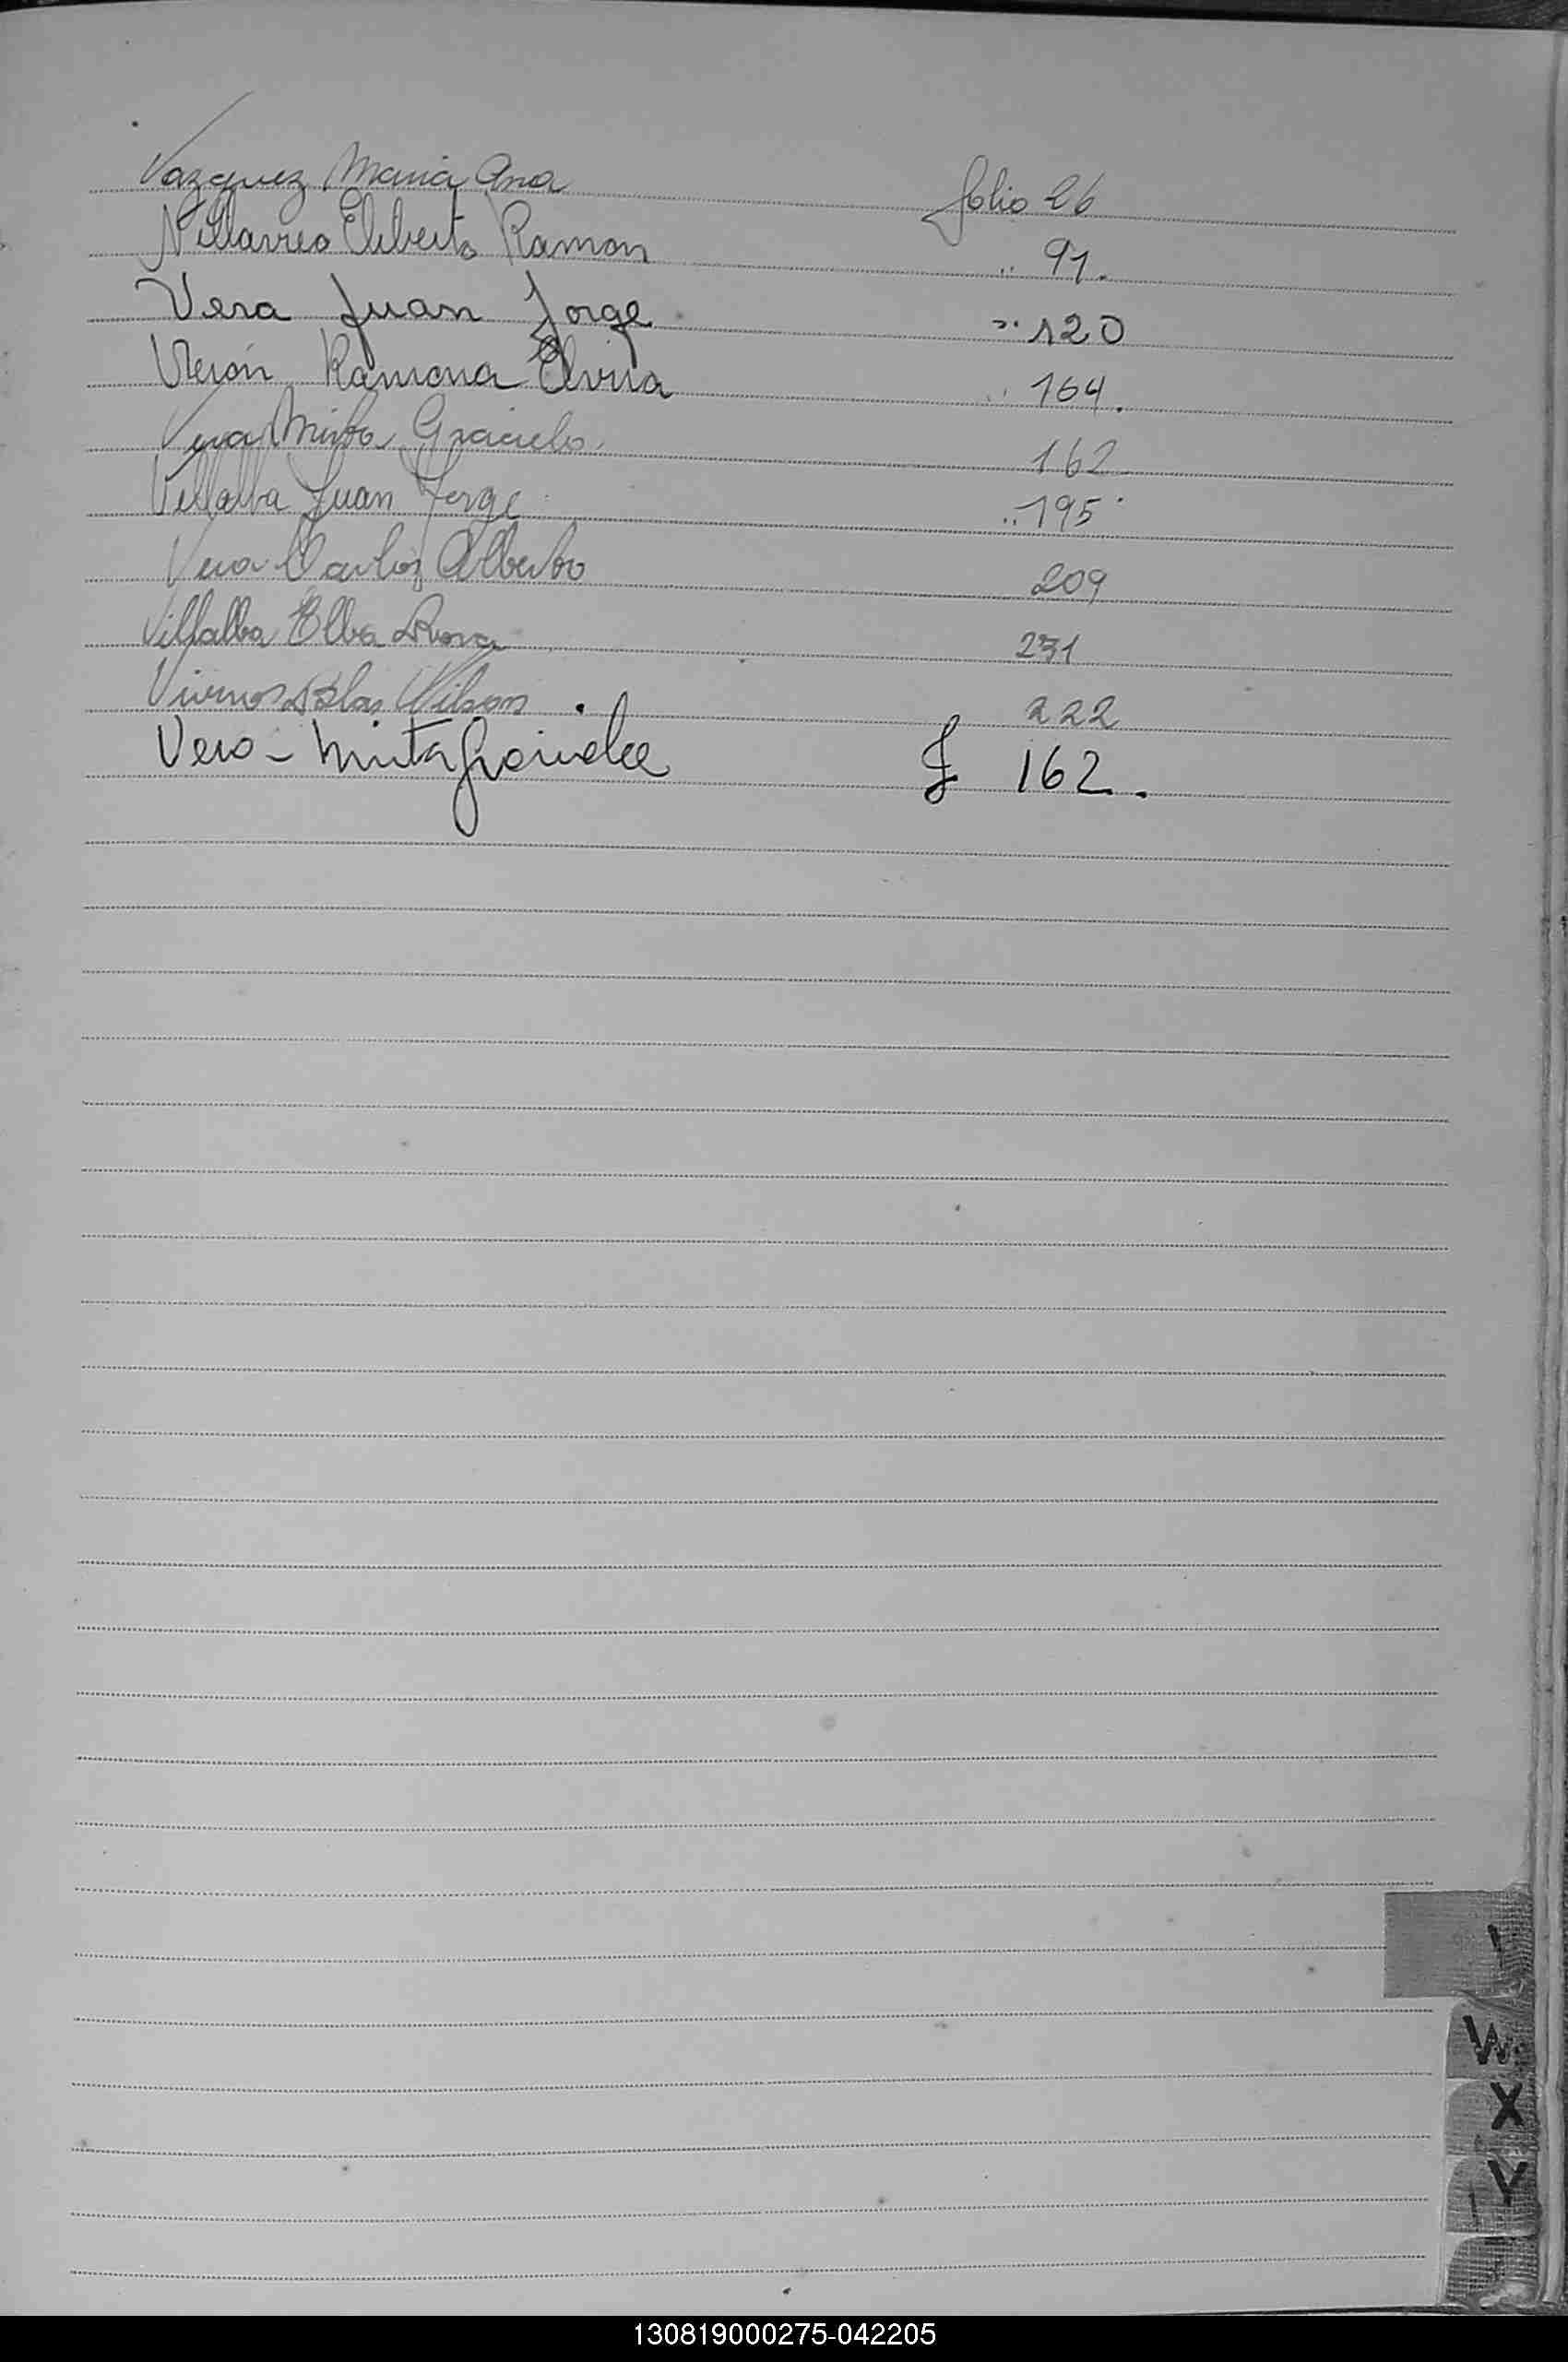 Vazquez Maria Ana folio 26
Ramon .. 91.
Vera Juan Jorge ". 120
Verón Ramona Elvira " 164.
Vera Mirta Graciela 162
Villalba Juan Jorge .. 195
Vera Carlos Alberto 209
Villalba Elba Rosa 231
Blas Wilson . 222
Vera - Mirta Graciela f 162.
W
X
Y
130819000275-042205